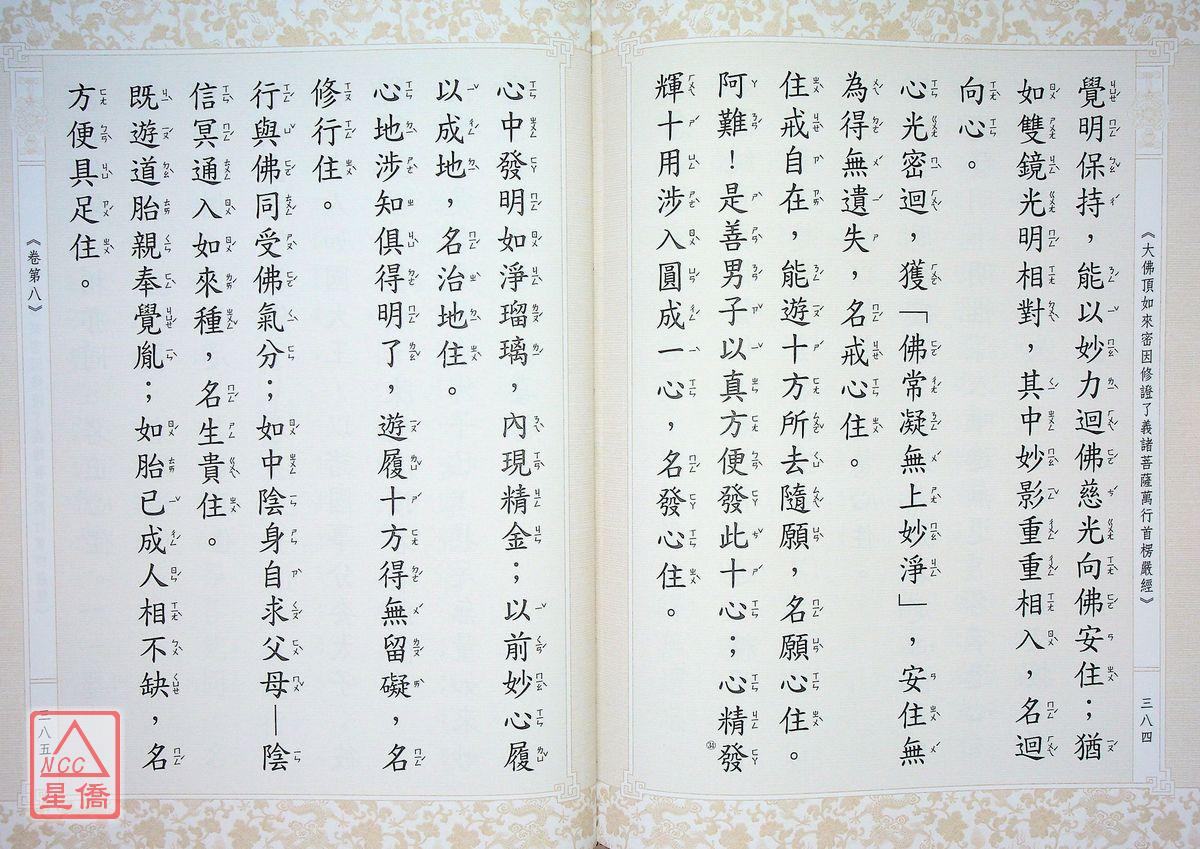 《大佛頂如來密因修證了義諸菩薩萬行首楞嚴經》
三八四
覺明保持，能以妙力迴佛慈光向佛安住；猶
如雙鏡光明相對，其中妙影重重相入，名迴
向心。
心光密迴，獲「佛常凝無上妙淨」，安住無
為得無遺失，名戒心住。
住戒自在，能遊十方所去隨願，名願心住。
阿難！是善男子以真方便發此十心；心精發
㉞
輝十用涉入圓成一心，名發心住。
心中發明如淨瑠璃，內現精金；以前妙心履
以成地，名治地住。
心地涉知俱得明了，遊履十方得無留礙，名
修行住。
行與佛同受佛氣分；如中陰身自求父母—陰
信冥通入如來種，名生貴住。
既遊道胎親奉覺胤；如胎已成人相不缺，名
方便具足住。
《卷第八》
三八五
NCC
星僑